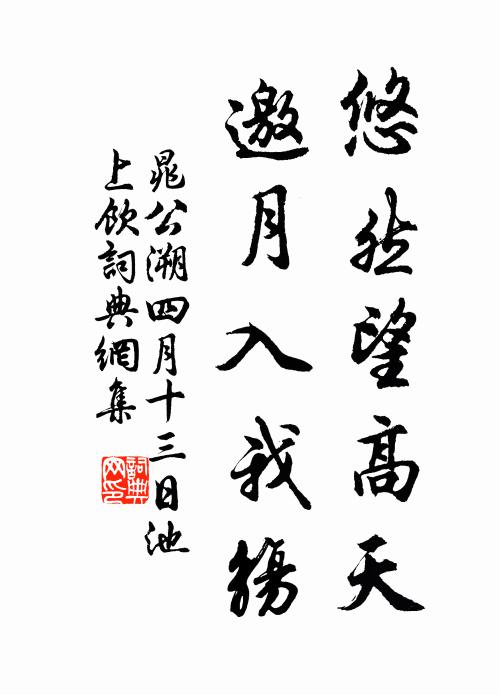 悠然望高天
邀月入我觴
晁公溯四月十三日池
上飲詞典網集
詞典
網印